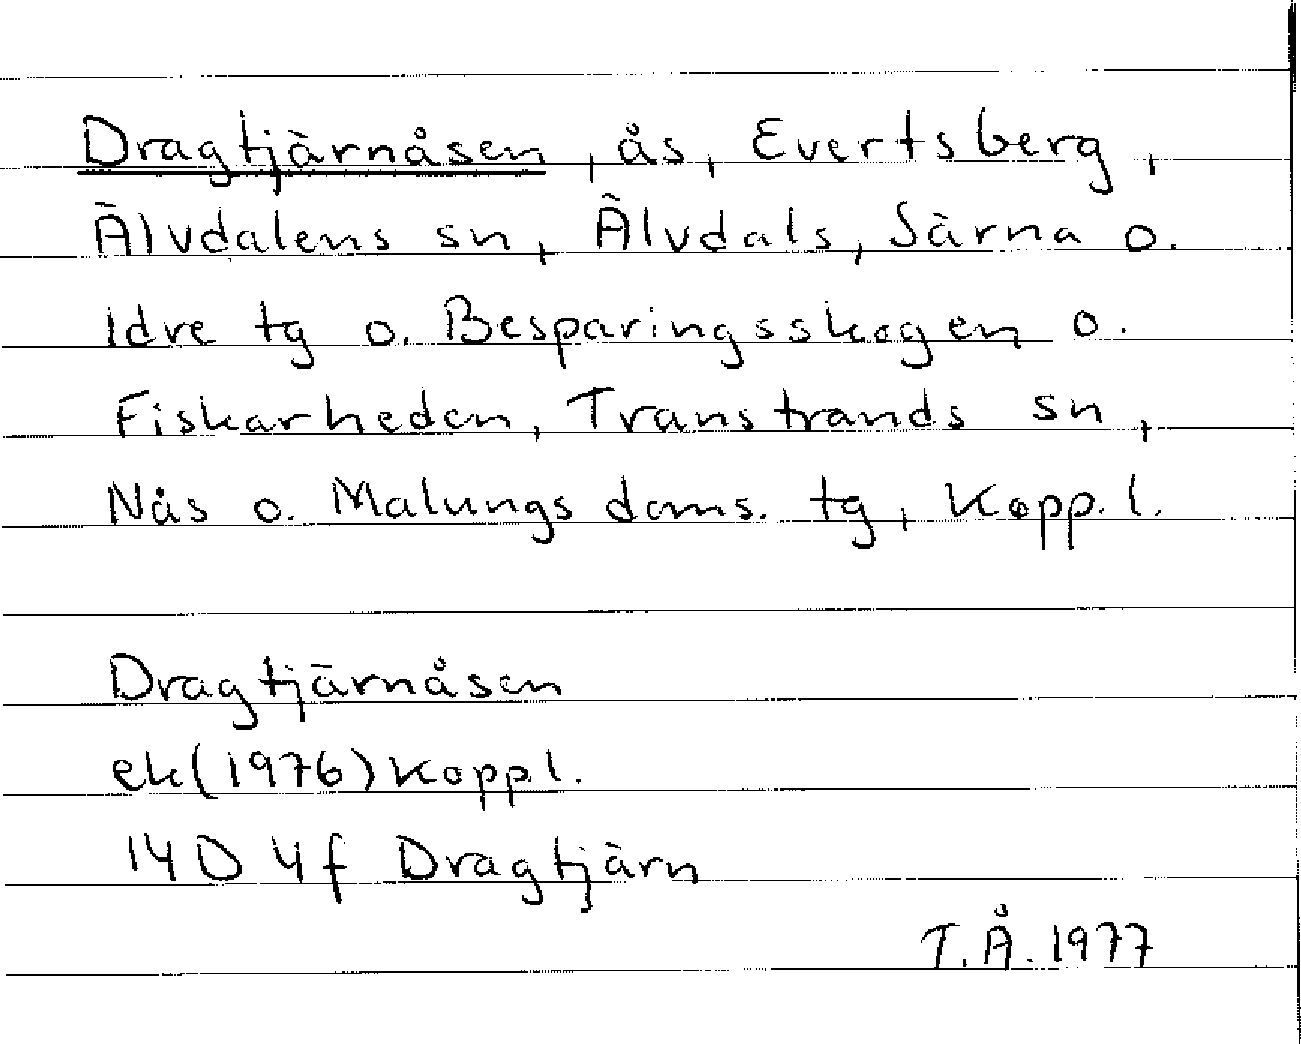 Dragtjärnåsen, ås, Evertsberg,
Älvdalens sn, Älvdals, Särna o.
Idre tg o. Besparingsskogen o.
Fiskarheden, Transtrands sn,
Nås o. Malungs doms. tg, Kopp. l.
Dragtjärnåsen
ek(1976)Koppl.
14D 4f Dragtjärn
T.Å.1977